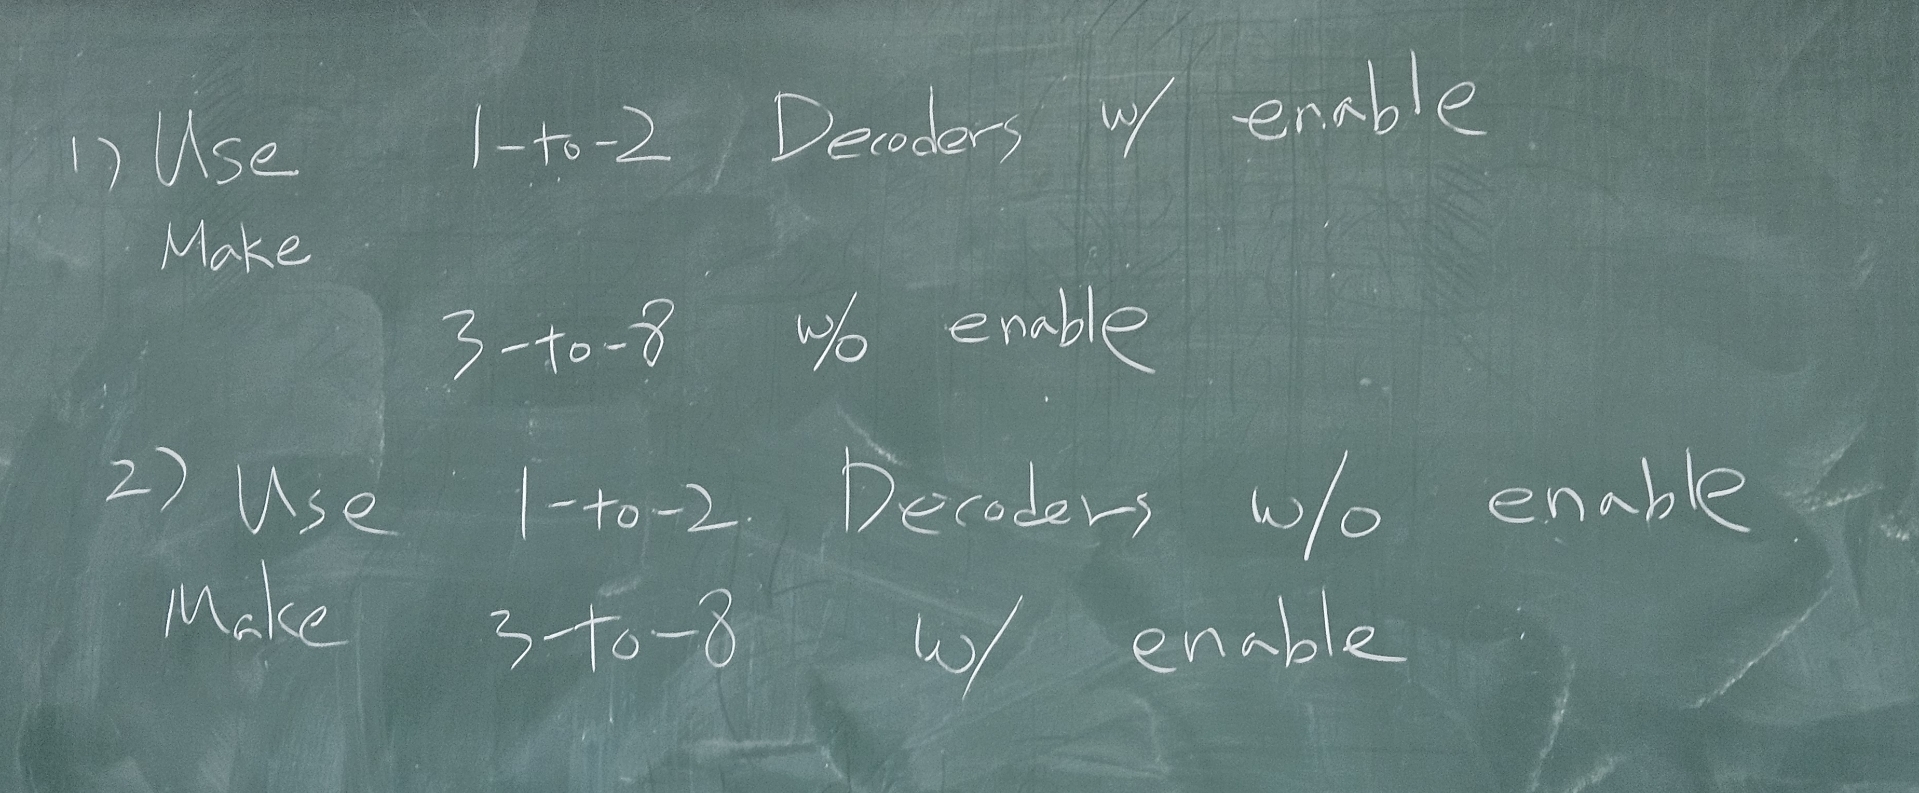 1) Use 1-to-2 Decoders w/ enable
Make
3-to-8 w/o enable
2) Use 1-to-2 Decoders w/o enable
Make 3-to-8 w/ enable